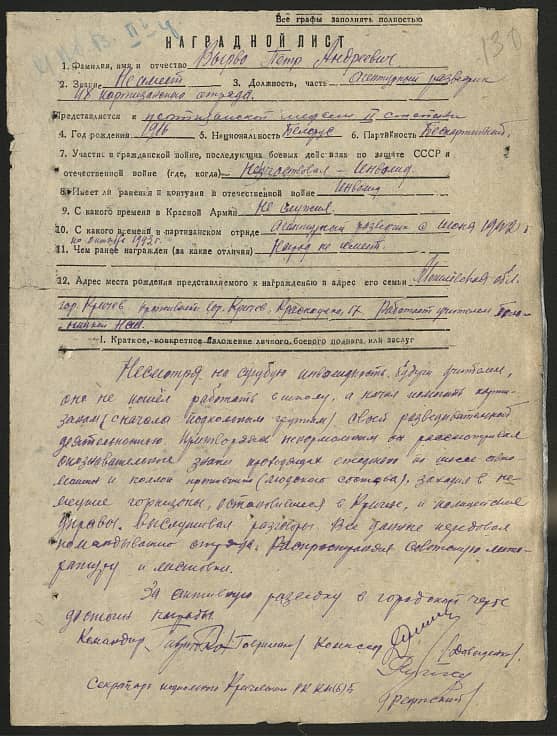 Все графы заполнять полностью
130
НАГРАДНОЙ ЛИСТ
1. Фамилия, имя и отчество Вырво Петр Андреевич
2. Звание Не имеет 3. Должность, часть Агентурный разведчик
партизанского отряда.
Представляется к партизанской медали II степени
4. Год рождения 1916 5. Национальность Белорус 6. Партийность Беспартийный.
7. Участие в гражданской войне, последующих боевых действиях по защите СССР и
отечественной войне (где, когда) Не участвовал – Инвалид.
8. Имеет ли ранения и контузии в отечественной войне Инвалид
9. С какого времени в Красной Армии Не служил.
10. С какого времени в партизанском отряде Агентурный разведчик с июня 1942 г.
по октябрь 1943 г.
11. Чем ранее награжден (за какие отличия) Наград не имеет.
12. Адрес места рождения представляемого к награждению и адрес его семьи Могилевская обл.
гор. Кричев проживает гор. Кричев, 17. Работает учителем
НСШ.
1. Краткое, конкретное изложение личного, боевого подвига, или заслуг
Несмотря на инвалидность, будучи учителем,
он не пошел работать в школу, а начал помогать парти-
занам (сначала подпольным группам) своей разведывательной
деятельностью. Притворяясь ненормальным он рассматривал
опознавательные знаки проходящих по шоссе авто-
машин и колонн противника (людского состава), заходил в не-
мецкие, в Кричеве, и полицейские
выслушивал разговоры. Все данные передавал
командованию отряда. Распространял советскую лите-
ратуру и листовки.
За активную разведку в городской черте
достоин награды.
Командир Комиссар
Секретарь Кричевского РК КП(б)Б